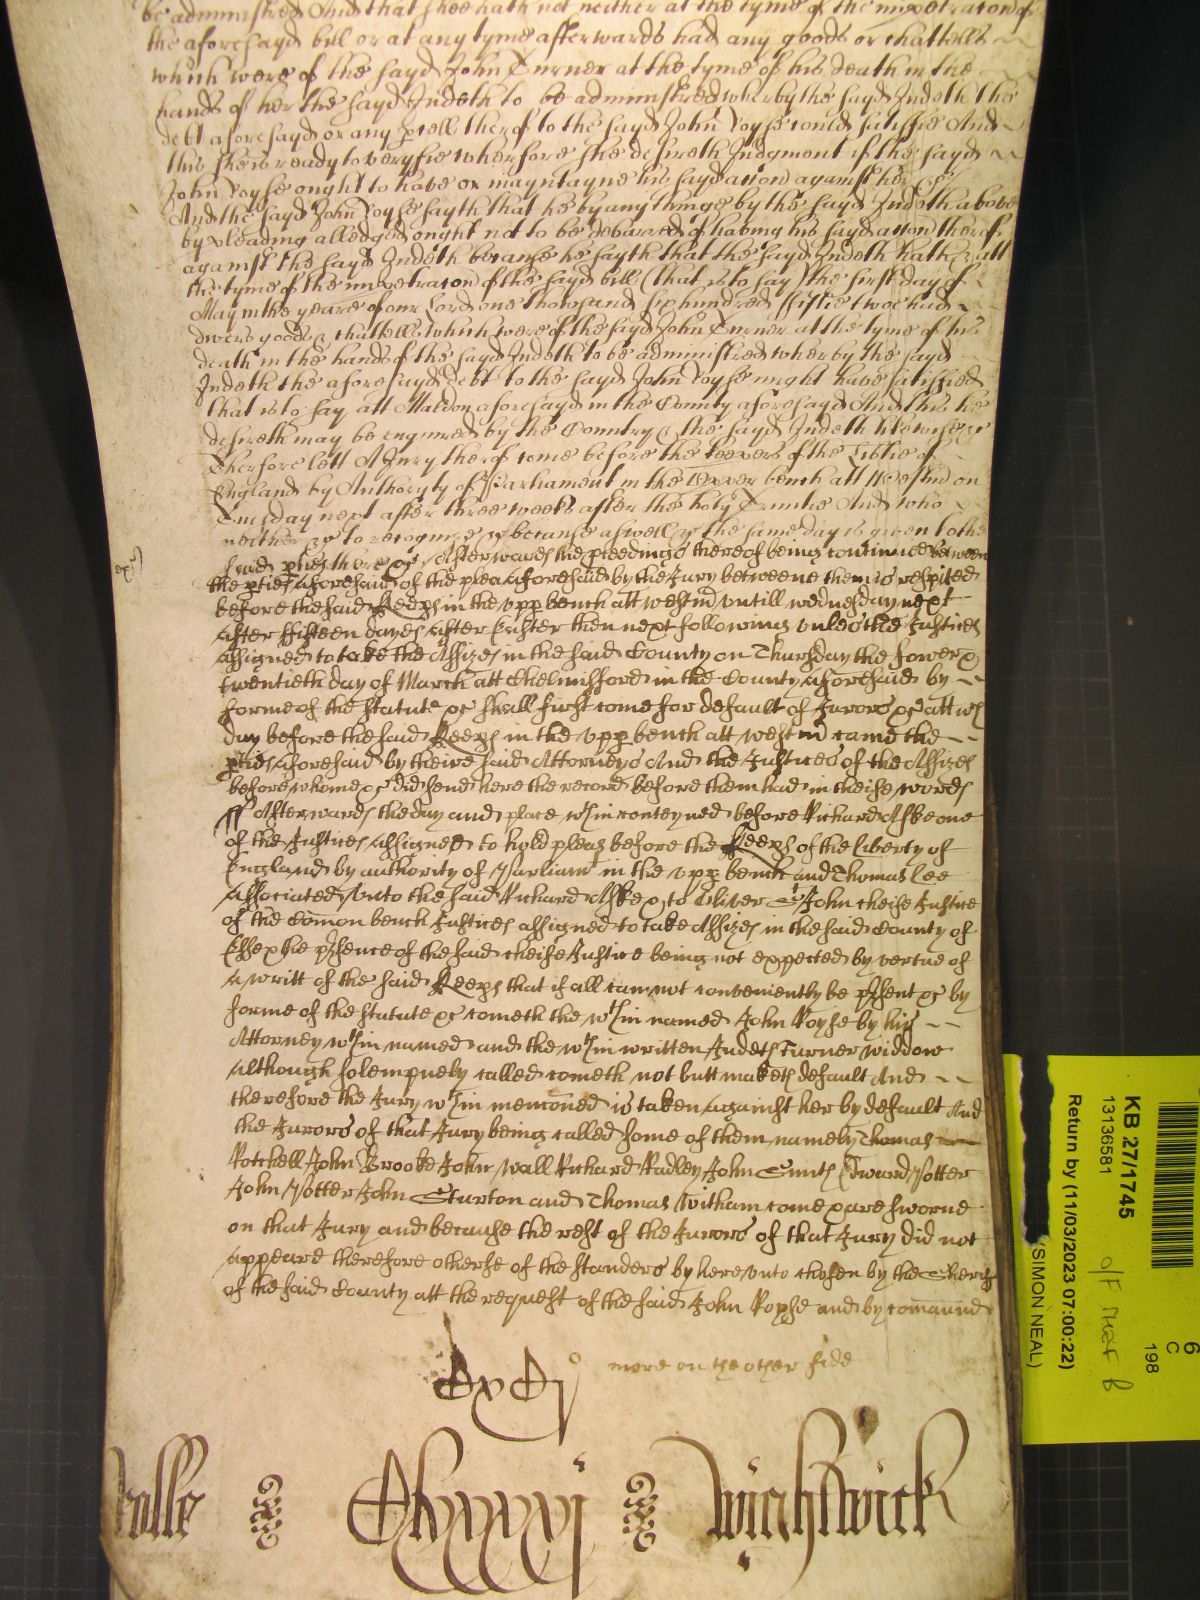 be administred And that shee hath not neither at the tyme of the impetracon of
the aforesayd bill or at any tyme afterwards had any goods or chattells
which were of the sayd John Turner at the tyme of his death in the
hands of her the sayd Judeth to be administred wherby the sayd Judeth the
debt aforesayd or any pcell therof to the sayd John Royse could satisfie And
this she is ready to veryfie wherfore she desireth Judgment if the sayd
John Royse ought to have or mayntayne his sayd accon against her &c
And the sayd John Royse sayth that he by any thinge by the sayd Judeth above
by pleading alledged ought not to be debarred of having his sayd accon therof
against the sayd Judeth because he sayth that the sayd Judeth hath att
the tyme of the impetracon of the sayd bill (that is to say) the first day of
May in the yeare of our Lord one thousand six hundred fiftie two had
divers goods & chattells which were of the sayd John Turner at the tyme of his
death in the hands of the sayd Judeth to be administred wherby the sayd
Judeth the aforesayd debt to the sayd John Royse might have satisfied
that is to say att Maldon aforesayd in the County aforesayd And this he
desireth may be enquired by the Country & the sayd Judeth likewise &c
Therfore lett A Jury therof come before the keepers of the Libtie of
England by Authoryty of Parliament in the Upper bench att Westm on
Tuesday next after three weeks after the holy Trinitie And who
neither &c to recognize &c because aswell &c the same day is given to the
said pties there &c Afterwards the pceedings thereof being continued betweene
the pties aforesaid of the plea aforesaid by the Jury betweene them is respited
before the said Keeps in the vpp bench att westm vntill wednesday next
after fifteen dayes after Easter then next following vnles the Justices
assigned to take the Assizes in the said County on Thursday the fower &
twentieth day of March att Chelmsford in the County aforesaid by
forme of the statute &c shall first come for default of Jurors &c att wch
day before the said Keeps in the vpp bench att westm came the
pties aforesaid by theire said Attorneys And the Justices of the Assizes
before whome &c did send here the record before them had in theise words
ss Afterwards the day and place wthin conteyned before Richard Aske one
of the Justices assigned to hold pleas before the Keeps of the liberty of
England by authority of Parliamt in the vpp bench and Thomas Lee
Associated vnto the said Richard Aske & to Oliver St John cheife Justice
of the Comon bench Justices assigned to take Assizes in the said County of
Essex the psence of the said cheife Justice being not expected by vertue of
a writt of the said Keeps that if all cannot conveniently be psent &c by
forme of the statute &c cometh the wthin named John Royse by his
Attorney wthin named and the wthin written Judeth Turner widdow
although solempnely called cometh not butt maketh default And
therefore the Jury wthin menconed is taken against her by default And
the Jurors of that Jury being called some of them namely Thomas
Rotchell John Brooke John Wall Richard Radley John Smith Edward Potter
John Potter John Sturton and Thomas Witham come & are sworne
on that Jury and because the rest of the Jurors of that Jury did not
appeare therefore others of the standers by herevnto chosen by the Sheriff
of the said County att the request of the said John Royse and by comaund
more on the other side
Wightwick
KB 27/1745
13136581
Return by (11/03/2023 07:00:22)
(SIMON NEAL)
6
C
198